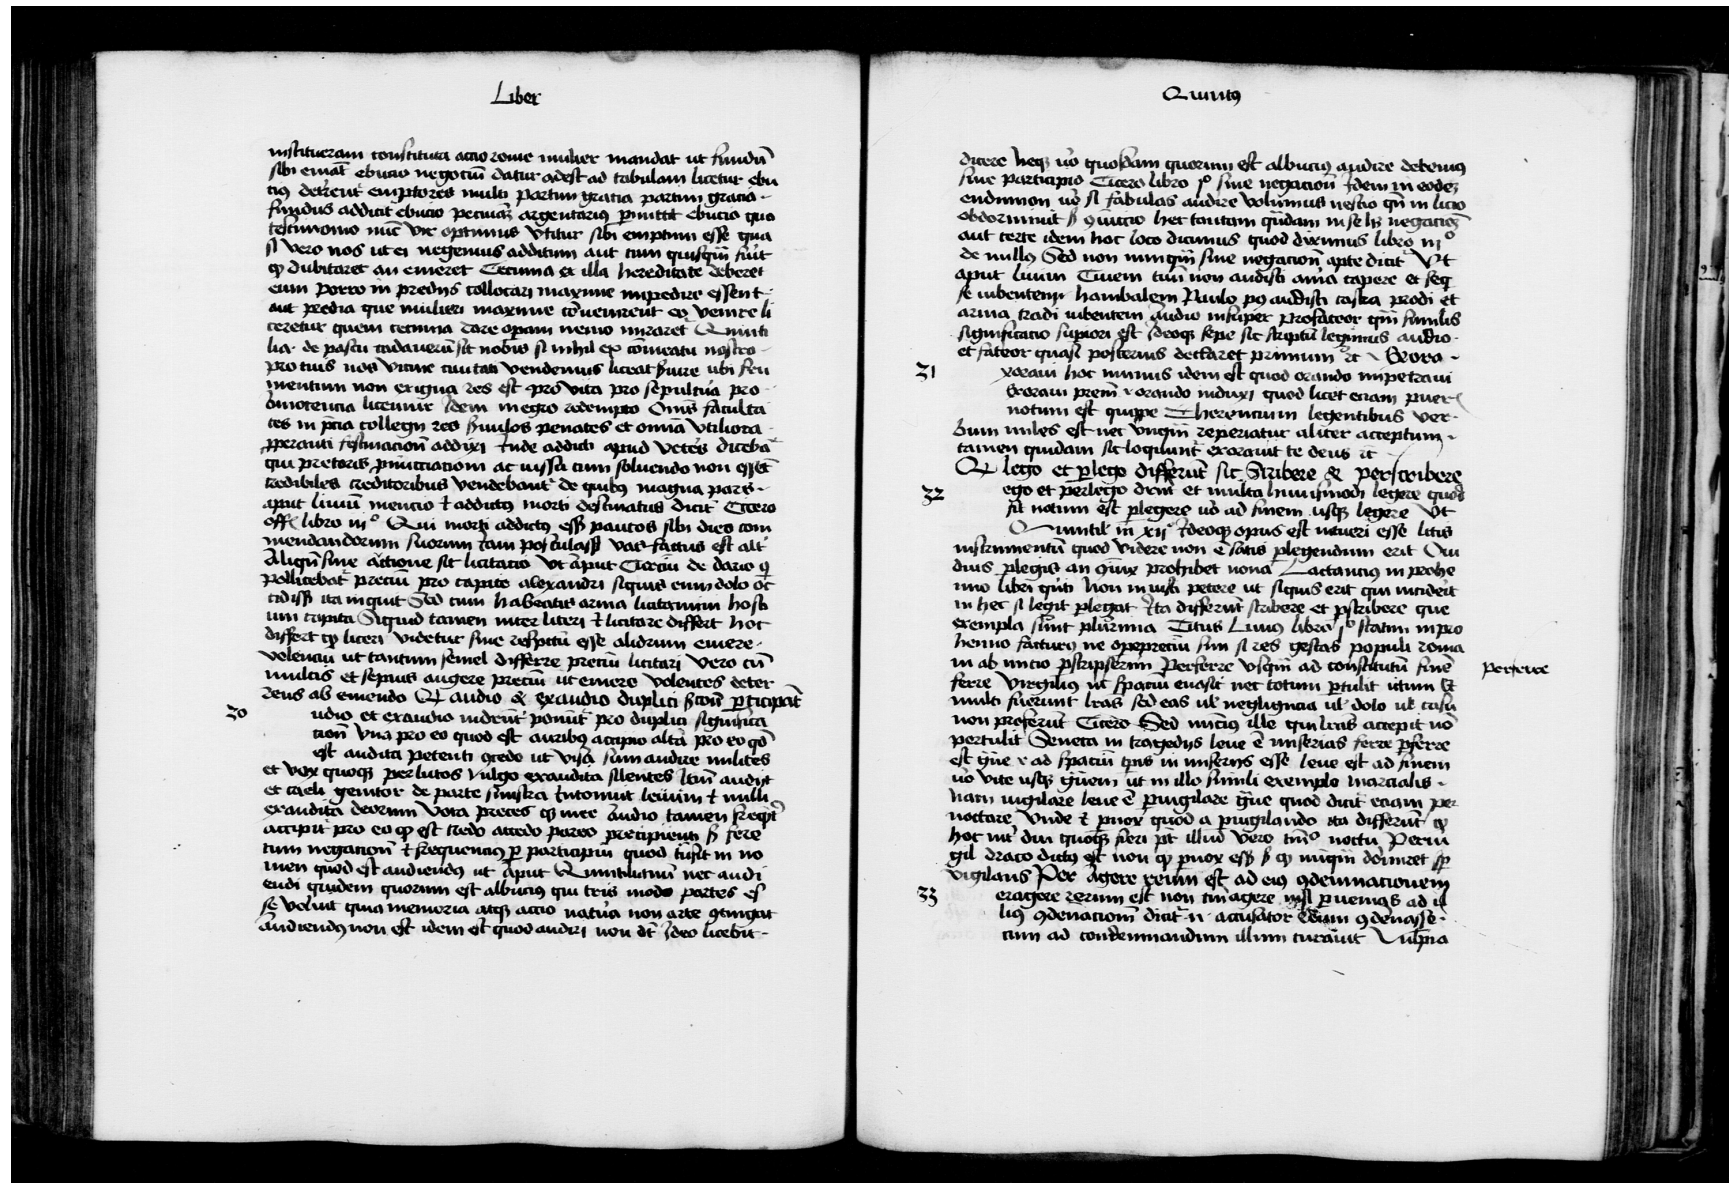 Liber
institueram constituta actio rome mulier mandat ut fundū
sibi emat̄ ebucio negotiū datur adest ad tabulam licetur ebu
tiꝰ deterrent̄ emptores multi partim gratia partim gratia
fundus addicit̄ ebucio pecuniā argentarius ꝓmittit ebucio quo
testimonio nūc vir optimus vtitur sibi emptum esse qua
si vero nos ut ei negemus additum aut tum quisqm̄ fuit
qͥ dubitaret an emeret Cecinna ex illa hereditate deberet
eum porro in predijs collocari maxime impedire essent
aut predia que mulieri maxime cōvenirent eo venire li
ceretur quem cecinna dare operam nemo miraret̄ Quinti
lia de pastu cadaverū sit nobis si nihil ex cōmeatu nostro
protius nos vicine civitati vendemus liceat ūire ubi fru
mentum non exigua res est pro vita pro sepultura pro
innocencia licemur Idem in egro redempto Omīs faculta
tes in p̄cia collegi res ūiulos penates et omnia vtiliora
ꝓperanti festinacionē addixi Inde addicti apud vetēs diceba
qui pretoris ꝓnūcciacionī ac iussu cum soluendo non essēt
credibiles creditoribus vendebant̄ de quibꝰ magna pars
aput liuiū mencio ē addictꝰ morti destinatus dicit̄ Cicero
offi libro iijº Qui morti addictꝰ essꝫ paucos sibi dies com
mendandorum suorum cām postulassꝫ vas factus est alt̄
Aliqn̄ sine actione sit licitacio Vt aput Curciū de dario qͥ
pollicebat̄ preciū pro capite alexandri siquis eum dolo oc
cidissꝫ ita inquit Sed cum habeatis arma licitamini hosti
um capita Siquid tamen inter liceri ē licitare differt hoc
differt qͥ liceri videtur sine respectu esse aliorum emere
volenciū ut tantum semel differre preciū licitari vero cū
multis et sepius augere preciū ut emere volentes deter
reus ab emendo Qͥ audio & exaudio duplici sicōū ꝑticipāt
30
udio et exaudio inderūt ponūt̄ pro duplici significa
cionē vna pro eo quod est auribꝰ accipio altā pro eo qō
est audita petenti credo ut visa sum audire milites
et vox quoqꝫ per lucos vulgo exaudita silentes Itm̄ audijt
et caeli genitor de parte sinistra Intonuit leuum ē nulli
exaudita deorum Vota preces qͥ mee Audio tamen freqn̄t̄
accipit̄ pro eo qͥ est credo accedo pareo precipienti sꝫ fere
cum negacionē ē frequencius ꝑ participiū quod iussit in no
men quod est audiendꝰ ut aput Quintilianū nec audi
endi quidem quorum est albucius qui tris modo partes es
se voluit quia memoria atqꝫ actio natura non arte ꝯtingāt
Audiendꝰ non est idem est quod audiri non dt̄ Ideo licebit
Quintꝰ
dicere Neqꝫ v̄o quosdam quorum est albucius audire debemus
sine participio Cicero libro jº sine negacionē Idem in eodeꝫ
endimion v̄o si fabulas audire volumus nescio qn̄ in licio
obdormiuit sꝫ ꝯuicio hec tantam quādam in se hꝫ negacionē
aut certe idem hoc loco dicimus quod diximus libro iijº
de nullꝰ Sed non nunqm̄ sine negacionē apte dicit̄ Vt
aput liuium Ciuem tuū non audisti arma capere et seq̄
se iubentem hanibalem Paulo pꝰ audisti castra prodi et
arma tradi iubentem Audio insuper profateor qn̄ similis
significatio superiori est Ideoqꝫ sepe sic scriptū legimus audio
et fateor quasi posterius declaret primum ꝛc Exora
31
xoraui hoc munus idem est quod orando impetraui
Exoraui prem̄ ⁊ orando induxi quod licet eciam pueris
notum est quippe Therencium legentibus ver
bum miles est nec vnqm̄ reperiatur aliter acceptum
tamen quidam sic loqūtur exorauit te deus ꝛc
Qͥ lego et ꝑlego differūt sic Scribere & perscribere
32
ego et perlego drn̄t et multa huiusmodi legere quod
sit notum est ꝑlegere v̄o ad finem usqꝫ legere Vt
Quintil̄ in xijº Ideoqꝫ opus est intueri esse litis
instrumentū quod videre non ē satis ꝑlegendum erit Oui
dius ꝑlegis an ꝯiux prohibet noua Lactancius in prohe
mio libri qn̄ti Non in iusti petere ut siquis erit qui inciderit
in hec si legit ꝑlegat Ita differūt scribere et ꝑscribere que
exempla sūnt plurima Titus Liuius libro jº statim in pro
hemio facturꝰ ne opeprecīu sim si res gestas populi roma
ni ab inicio ꝑscripserim Perferre vsqm̄ ad constitutū finē
perferre
ferre Virgilius ut spaciū euasit nec totum ꝑtulit ictum Et
multi fuerunt lr̄as sed eas ul̄ negligencia ul̄ dolo ul̄ casu
non proferūt Cicero Sed nūcius ille qui lr̄as accepit nō
pertulit Seneca in tragedijs leue ē miserias ferre ꝑferre
est gͣue ⁊ ad spaciū tꝑis in miserijs esse leue est ad finem
v̄o vite usqꝫ gͣuem ut in illo simili exemplo marcialis
Nam uigilare leue ē ꝑuigilare gͣue quod dicit̄ eciam per
noctare Vnde ē ꝑnox quod a ꝑuigilando ita differūt qͥ
hoc int̄diu quoqꝫ fieri pt̄ illud vero tm̄º noctu Perui
gil draco dictꝰ est non qͥ ꝑnox essꝫ sꝫ qͥ nūqm̄ dormiret sꝑ
vigilans Per agere reum est ad eiꝰ ꝯdemnacionem
33
eragere rerum est non tm̄ agere nisi ꝑuenias ad il
liꝰ ꝯdenacionē dicit̄ n̄ accusator Reum ꝯdēnasse
cum ad condemnandum illum curauit Vulpia